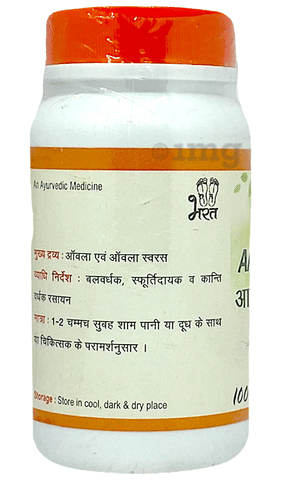 1mg
An Ayurvedic Medicine
भरत
मुख्य द्रव्य : आँवला एवं आँवला स्वरस
व्याधि निर्देश : बलवर्धक, स्फूर्तिदायक व कान्ति
वर्धक रसायन
मात्रा : 1-2 चम्मच सुबह शाम पानी या दूध के साथ
या चिकित्सक के परामर्शनुसार ।
Storage : Store in cool, dark & dry place
100